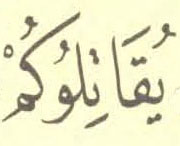 يُقَاتِلُوُكُمْ